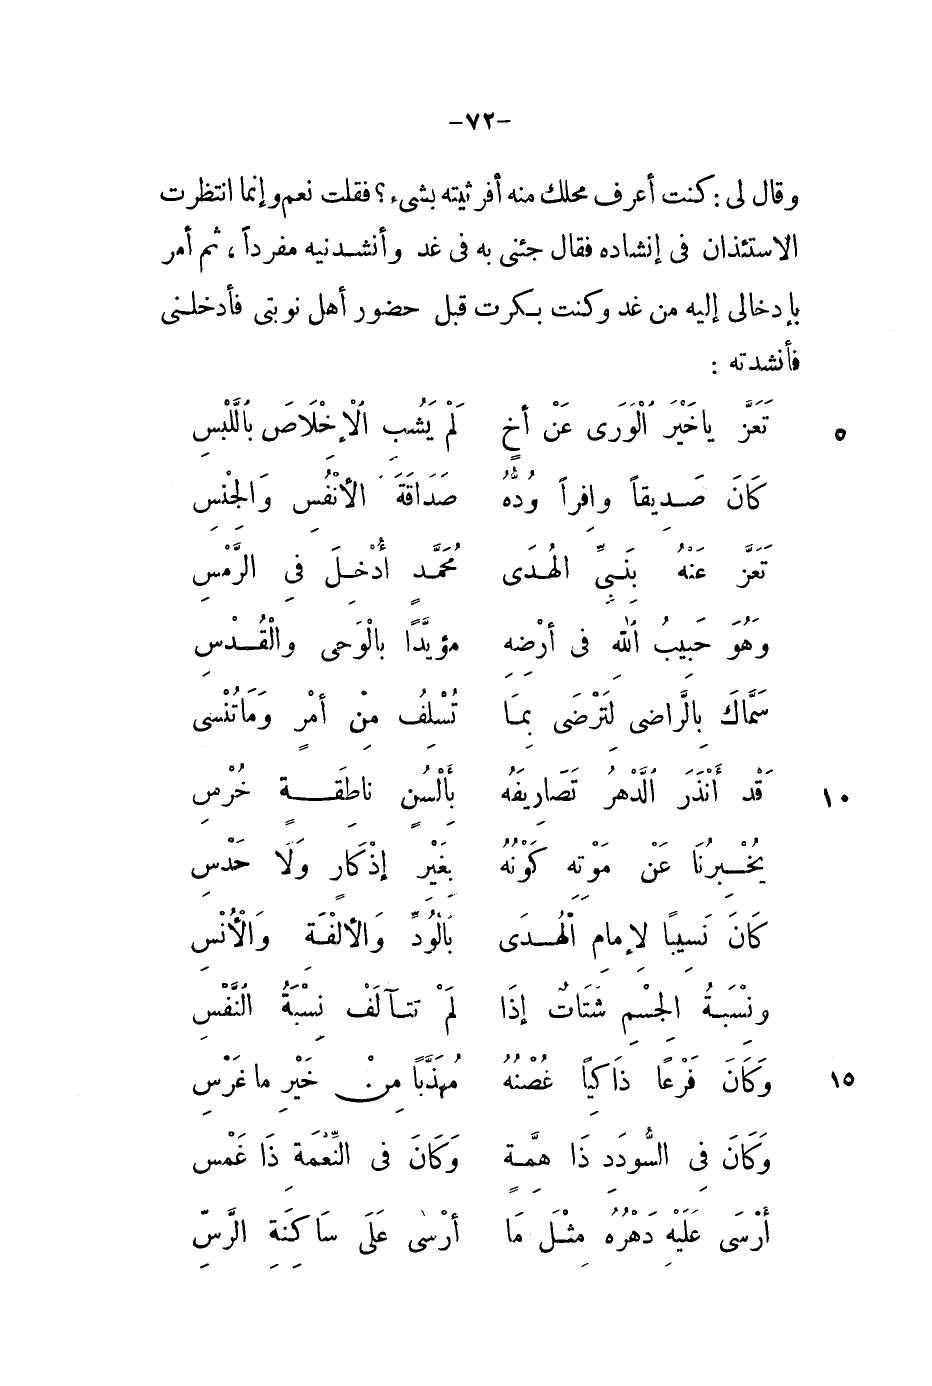 -٧٢-
وقال لى : كنت أعرف محلك منه أفرثيته بشىء ؟ فقلت نعم وإنما انتظرت
الاستئذان فى إنشاده فقال جئنى به فى غد وأنشدنيه مفرداً ، ثم أمر
بإدخالى إليه من غد وكنت بكرت قبل حضور أهل نوبتى فأدخلنى
فأنشدته :
تَعَزَّ ياخَيْرَ ٱلْوَرَى عَنْ أخٍ لَمْ يَشُبِ ٱلْإخْلَاصَ بٱللَّبْسِ ٥
كَانَ صَديقاً وافِراً وُدُّهُ صَدَاقَةَ الأنْفُسِ وَالجِنْسِ
تَعَزَّ عَنْهُ بنَبِيِّ الهُدَى مُحَمَّدٍ أُدْخِلَ فِى الرَّمْسِ
وَهُوَ حَبِيبُ ٱللهِ فى أرْضِهِ مؤيَّدًا بالْوَحى والْقُدْسِ
سَمَّاكَ بِالرَّاضى لِتَرْضَى بمَا تُسْلِفُ مِنْ أمْرٍ وَمَاتُنْسى
قَدْ أَنْذَرَ ٱلدَّهْرُ تَصَارِيفَهُ بِأَلْسُنٍ ناطِقَةٍ خُرْسِ ١٠
يُخْبِرُنَا عَنْ مَوْتِهِ كَوْنُهُ بِغَيْرِ إذْكَارٍ وَلَا حَدْسِ
كَانَ نَسِيبًا لإمامِ ٱلْهُدَى بَالْوُدِّ وَالألْفَةِ وَالْأُنْسِ
ونِسْبَةُ الجِسْمِ شَتَاتٌ إذَا لَمْ تتآلَفْ نِسْبَةُ النَّفْسِ
وَكَانَ فَرْعًا ذَاكِيًا غُصْنُهُ مُهَذَّبًا مِنْ خَيْرِ ما غَرْسِ ١٥
وَكَانَ فِى السُّودَدِ ذَا هِمَّةٍ وَكَانَ فى النِّعْمَةِ ذَا غَمْسِ
أَرْسَى عَلَيْهِ دَهْرُهُ مِثْلَ مَا أرْسٰى عَلَى سَاكِنَةِ الرَّسِّ